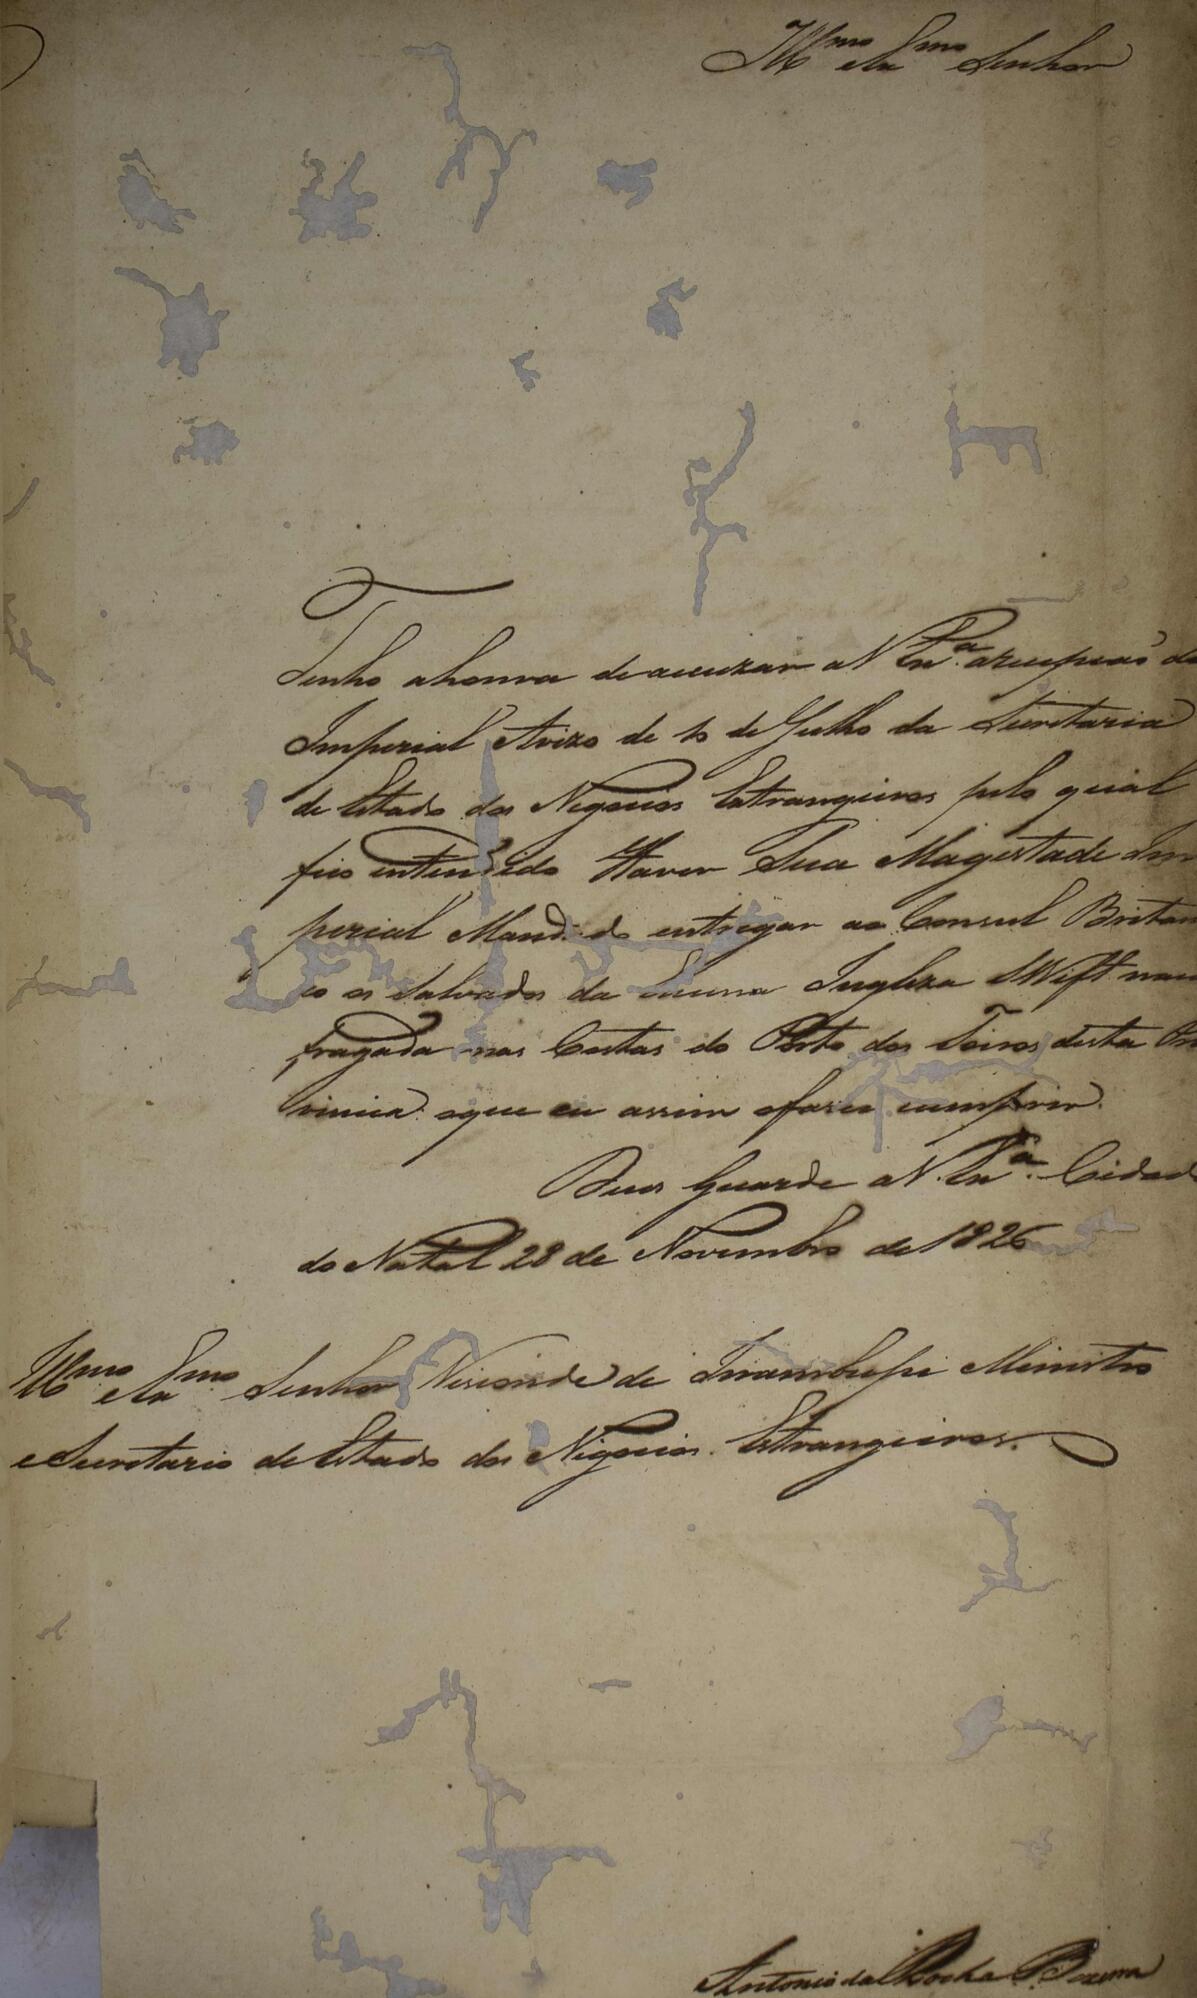 Ill.mo e Ex.mo Senhor
Tenho a honra de accuzar a V Ex.ª a recepção do
Imperial Avizo de 10 de Julho da Secretaria
de Estado dos Negocios Estrangeiros pelo qual
fico entendido Haver Sua Magestade Im
perial Mandado entregar ao Consul Britan
co os Salvados da Escuna Ingleza Swift nau
fragada nas Costas do Porto dos Toiros desta Pro
vincia: o que eu assim o farei cumprir.
Deos Guarde a V. Ex.ª Cidade
do Natal 28 de Novembro de 1826
Ill.mo e Ex.mo Senhor Visconde de Inhambupe Ministro
e Secretario de Estado dos Negocios Estrangeiros.
Antonio da Rocha Bezerra